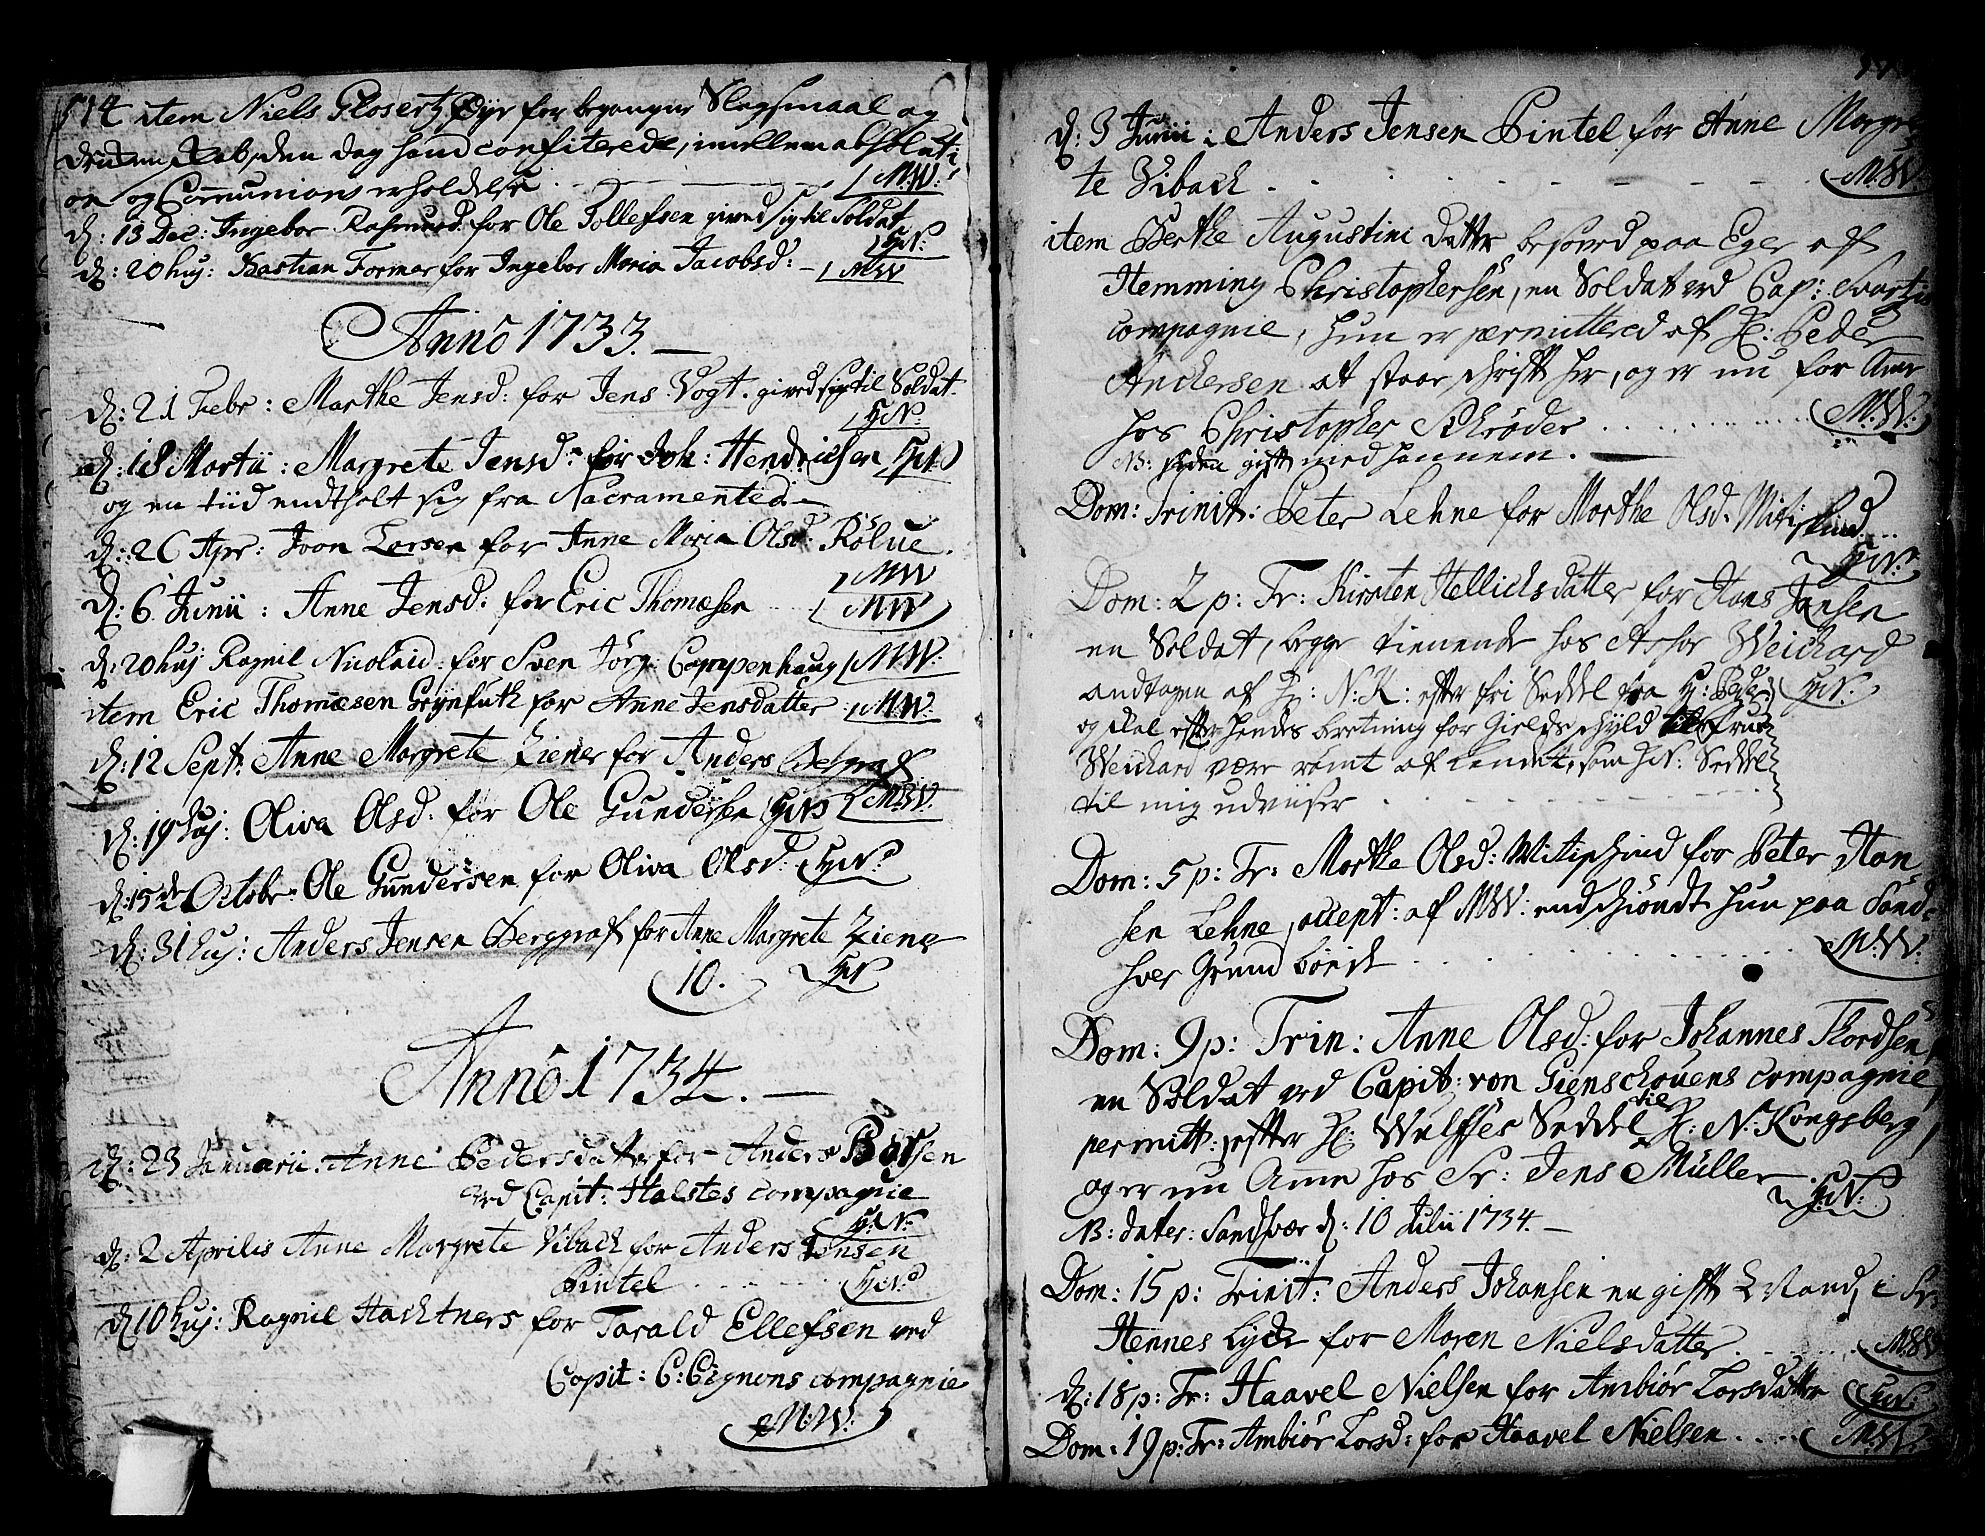 514 item Niels Glosertz Øye for begangen Slagsmaal og
druckenskab, den dag hand confiterede, imellem absoluti
on og Communions erholdelse M.W:
d: 13 Dec: Ingebor Rasmusd: for Ole Tollefsen gived sig til Soldat
H:N:
d: 20 huj: Bastian Former for Ingebor Maria Jacobsd: M:W
Anno 1733.
d: 21 Febr: Marthe Jensd: for Jens Vogt. gived sig til Soldat.
H:N:
d: 18 Martii: Margrete Jensd: for Joh: Hendrichsen H:N
og en tiid endtholt sig fra Sacramentet.
d: 26 Apr: Joon Larsen for Anne Maria Olsd: Rølue.
MW
d: 6 Junii: Anne Jensd: for Eric Thomæsen MW
d: 20 huj Ragnil Nicolaid: for Sven Jörg: Coppenhaug M:W:
item Eric Thomæsen for Anne Jensdatter M:W.
d: 12 Sept: Anne Margrete Ziener for Anders Bergraf
M:W.
d: 19 huj: Oliva Olsd: for Ole Gundersen H:N
d: 15de Octobr: Ole Gundersen for Oliva Olsd: H:N:
d: 31 huj: Anders Jensen Berggraf for Anne Margrete Ziener
10. H:N
Anno 1734.
d: 23 Januarii: Anne Pedersdatter for Anders Børsen
ved Capit: Halstes compagnie
H:N:
d: 2 Aprilis Anne Margrete Viback for Anders Jensen
Pintel H:N:
d 10 huj: Ragnil Hachtners for Tarald Ellefsen ved
Capit: C: Cignons compagnie
M:W:
d: 3 Junii: Anders Jensen Pintel for Anne Margre
te Viback M:W.
item Berthe Augustini datter besoved paa Eger af
Hemming Christophersen, en Soldat ved Cap:
compagnie, hun er permittered af H: Peder
Andersen at staae schrift her, og er nu for Amme
hos Christopher Schrøder M:W:
NB: siden gift med hannem.
Dom: Trinit: Peter Lehne for Marthe Olsd: Mitiskind
H:N:
Dom: 2 p: Tr: Kirsten Hellichsdatter for Hans Jansen
en Soldat, begge tienende hos Weichard
andtagen af H: N: K: efter fri Seddel fra H: Peder H:N:
og skal efter hendes beretning for Gields schyld til Frue
Weichard være rømt af Landet, som H:N: Seddel
til mig udviiser
Dom: 5 p: Tr: Marthe Olsd: Mitiskind for Peter Han
sen Lehne, accept: af MW: endschiøndt hun paa Sands
hver Grund boede M:W:
Dom: 9 p: Trin: Anne Olsd: for Johannes Thordsen,
en Soldat ved Capit: von Gienschouens compagnie,
permitt: efter H: Wulffes Seddel til H: N: Kongsberg,
og er nu Amme hos Sr: Jens Müller.
H:N:
NB: dater: Sandhvær d: 10 Julii 1734.
Dom: 15 p: Trinit: Anders Johansen en gift Mand, i
Hennes Lyde for Maren Nielsdatter M:W
d: 18 p: Tr: Haavel Nielsen for Ambiør Larsdatter H:N:
Dom: 19 p: Tr: Ambiør Larsd: for Haavel Nielsen M:W.